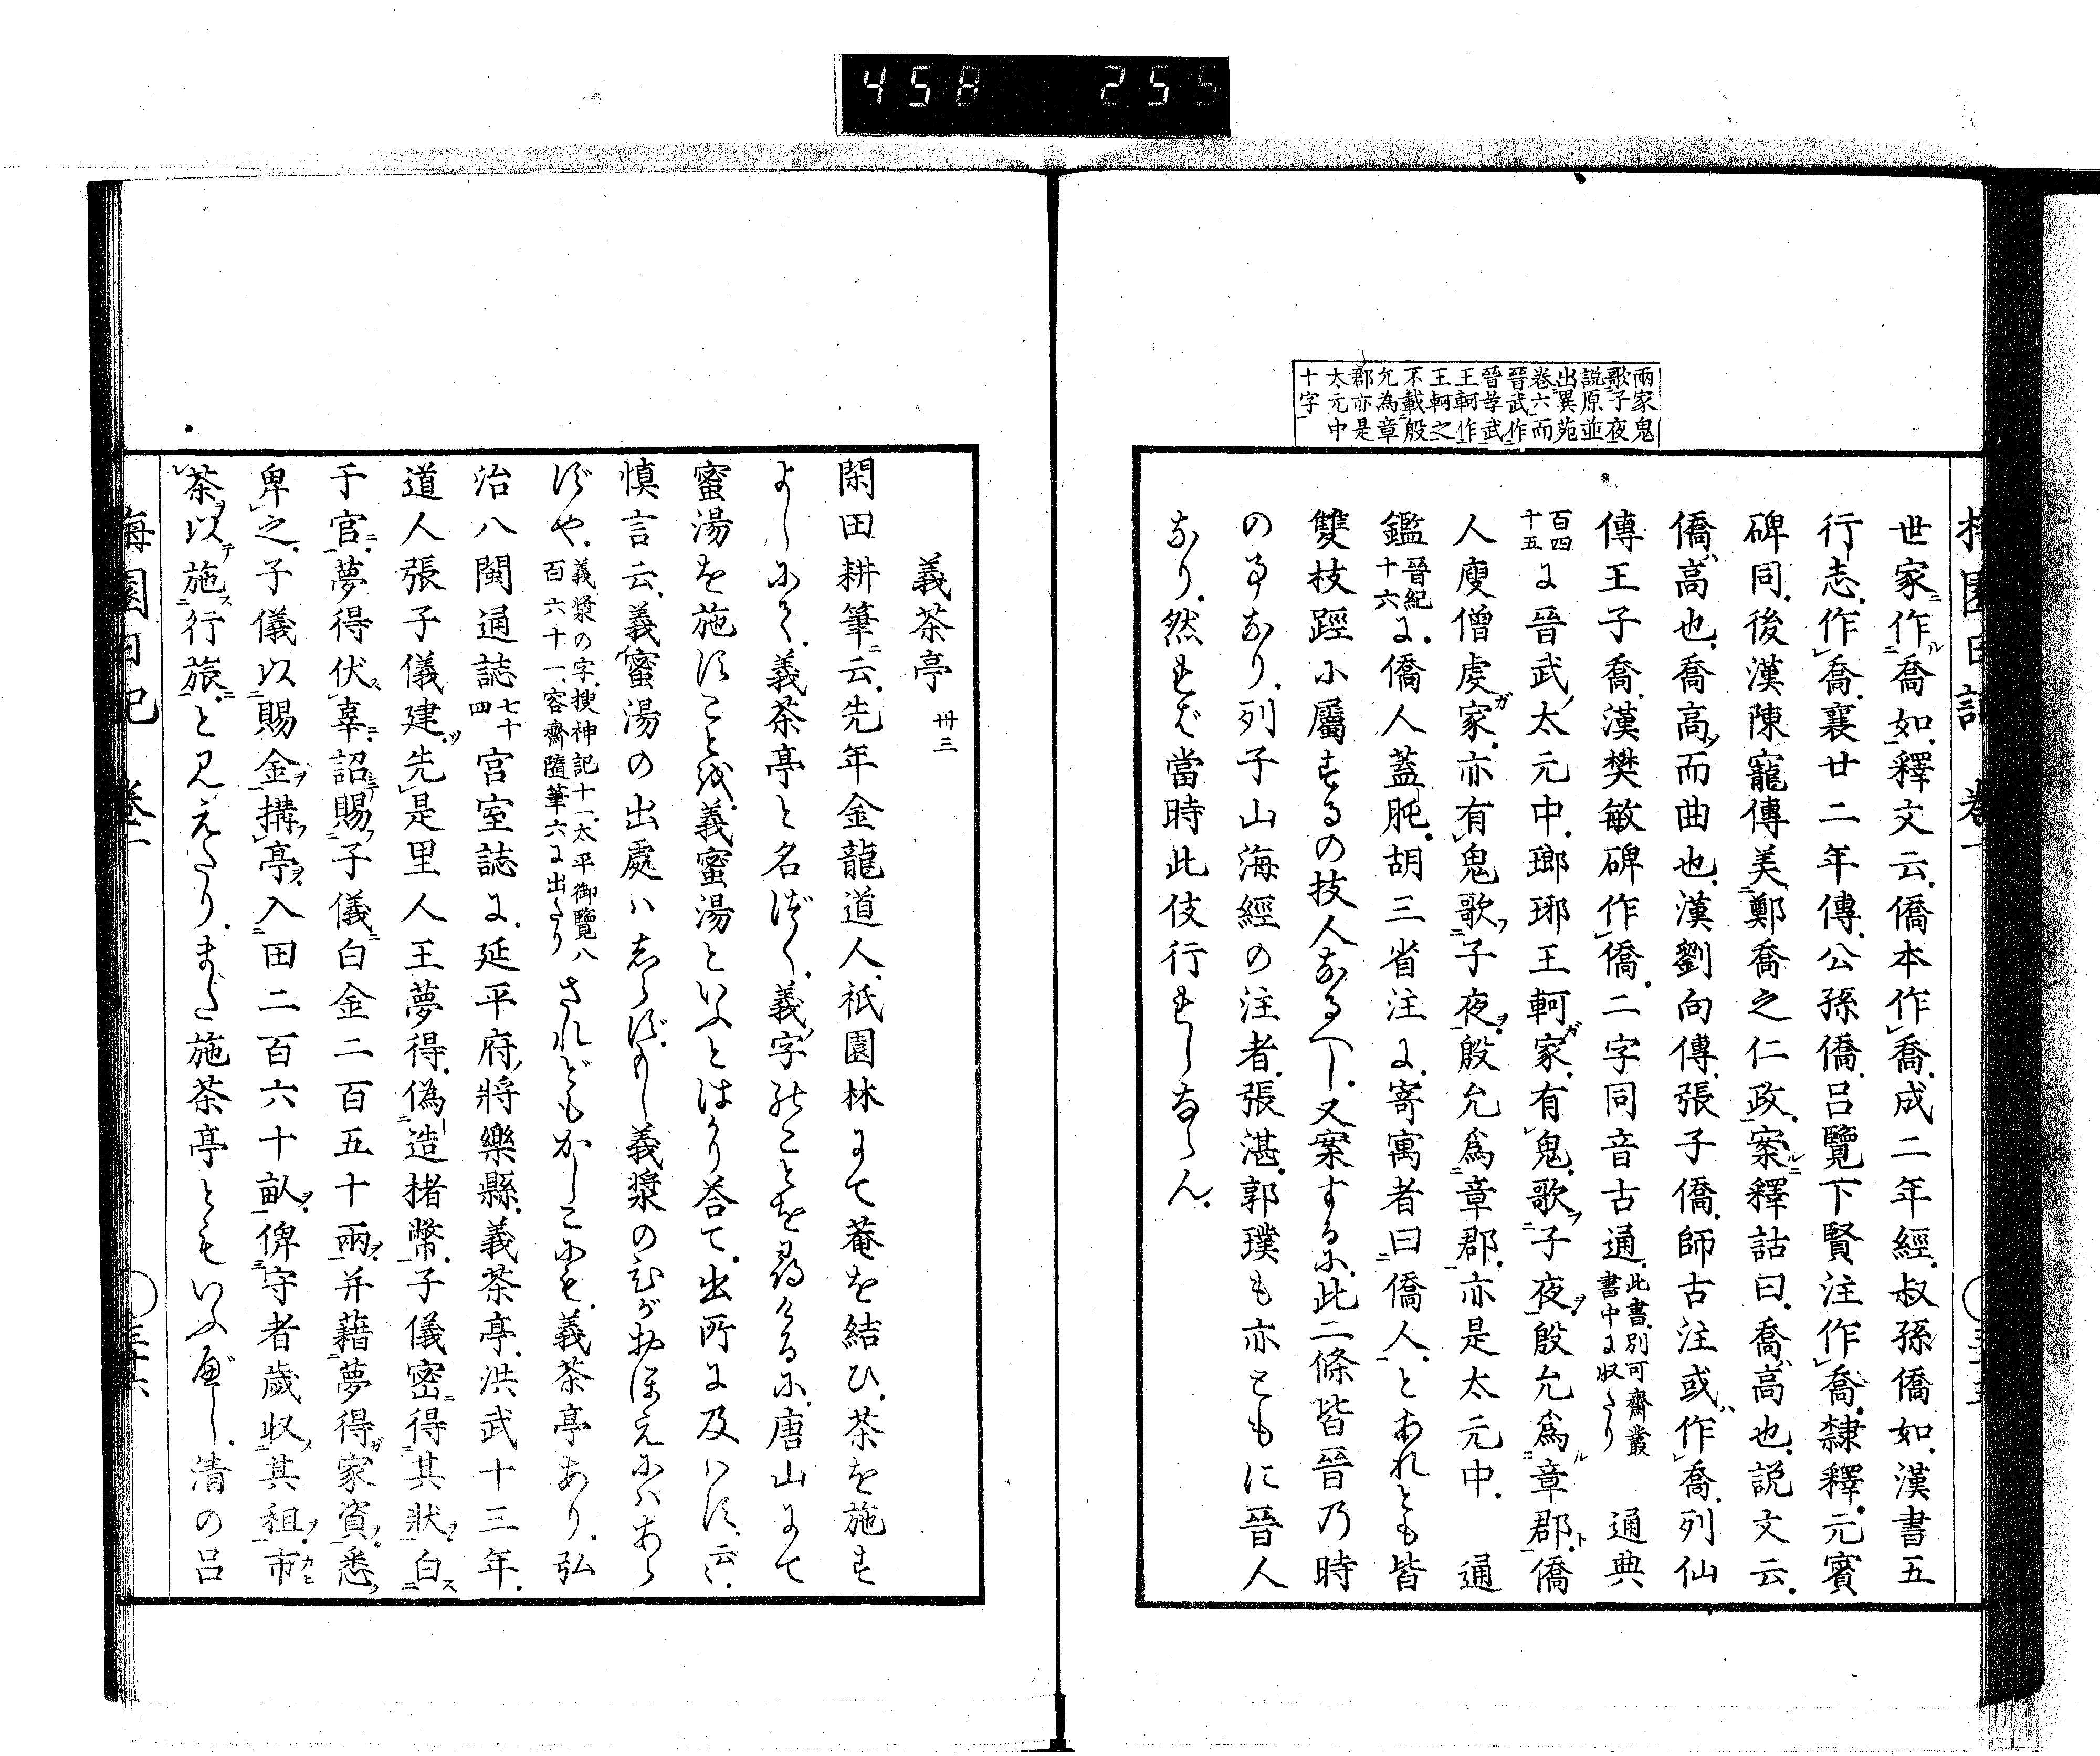 458 255
兩家鬼
歌子夜
説原並
出異苑
卷六而
晉武作
晉孝武
王軻作
王軻之
不載殷
允為章
郡亦是
太元中
十字
世家作喬如釋文云僑本作喬成二年經叔孫僑如漢書五
行志作喬襄廿二年傳公孫僑呂覽下賢注作喬隸釋元賓
碑同後漢陳寵傳美鄭喬之仁政案釋詁曰喬高也説文云
僑高也喬高而曲也漢劉向傳張子僑師古注或作喬列仙
傳王子喬漢樊敏碑作僑二字同音古通此書別可齋叢書中に收たり 通典
百四十五に晉武太元中瑯琊王軻家有鬼歌子夜殷允爲章郡僑
人庾僧虔家亦有鬼歌子夜殷允爲章郡亦是太元中 通
鑑晉紀十六に僑人蓋肫胡三省注に寄寓者曰僑人とあれとも皆
雙枝踁に屬するの技人なるへし又案するに此二條皆晉乃時
の事なり列子山海經の注者張湛郭璞も亦ともに晉人
なり然れば當時此伎行れしならん
義茶亭 卅三
閑田耕筆云先年金龍道人祇園林にて菴を結ひ茶を施す
よしにて義茶亭と名づく義字のことを尋けるに唐山にて
蜜湯を施すことを義蜜湯といふとはかり答て出所に及はす云々
慎言云義蜜湯の出處はしらずもし義漿のひがおぼえにはあら
ずや義漿の字搜神記十一太平御覽八百六十一容齋隨筆六に出たり されどもかしこにも義茶亭あり弘
治八閩通誌七十四宮室誌に延平府將樂縣義茶亭洪武十三年
道人張子儀建先是里人王夢得僞造楮幣子儀密得其狀白
于官夢得伏辜詔賜子儀白金二百五十兩并藉夢得家資悉
畀之子儀以賜金搆亭入田二百六十畝俾守者歲收其租市
茶以施行旅と見えたりまた施茶亭ともいふべし清の呂
梅園日記 卷一